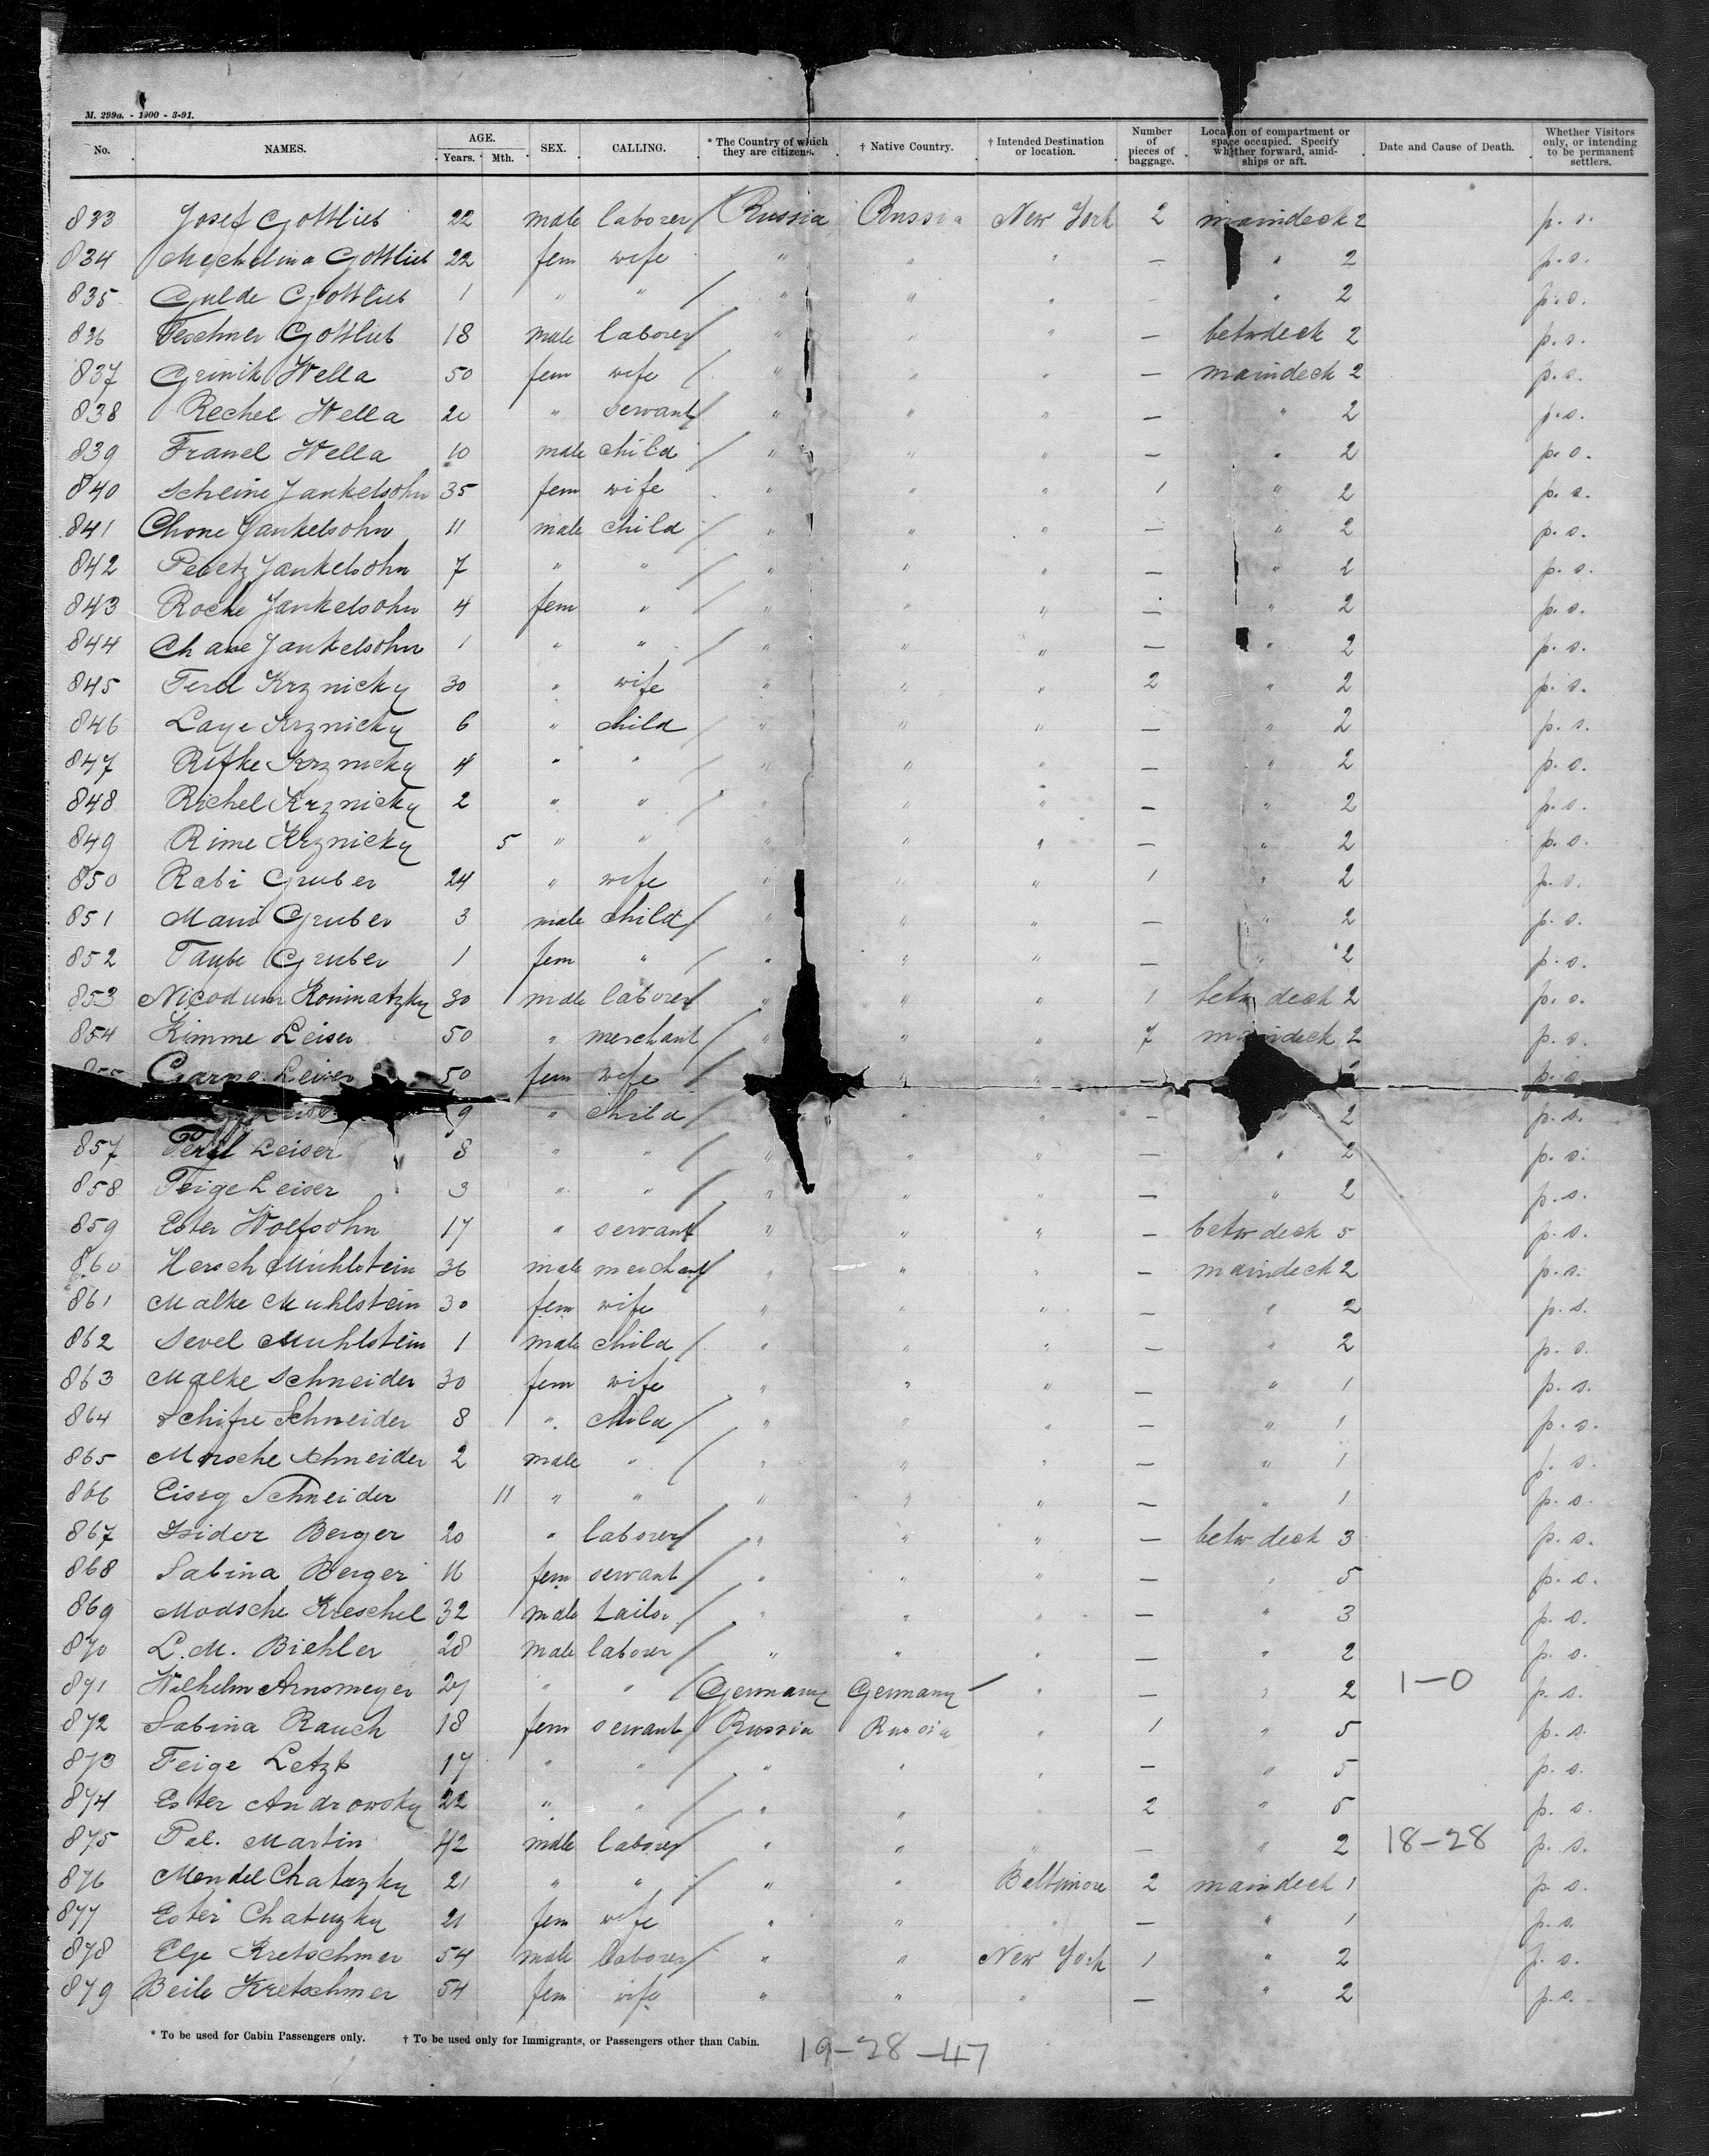 M. 299a. - 1900 - 3-91.
No. NAMES. AGE. Years. Mth. SEX. CALLING. * The Country of which they are citizens. † Native Country. † Intended Destination or location. Number of pieces of baggage. Location of compartment or space occupied. Specify whether forward, amidships or aft. Date and Cause of Death. Whether Visitors only, or intending to be permanent settlers.
833 Josef Gottlieb 22 male laborer Russia Russia New York 2 maindeck 2 p. s.
834 Mechelina Gottlieb 22 fem wife " " " — " 2 p. s.
835 Gulde Gottlieb 1 " " " " " — " 2 p. s.
836 Teschner Gottlieb 18 male laborer " " " — betwdeck 2 p. s.
837 Grinik Wella 50 fem wife " " " — maindeck 2 p. s.
838 Rechel Wella 20 " servant " " " — " 2 p. s.
839 Franel Wella 10 male child " " " — " 2 p. s.
840 Scheine Jankelsohn 35 fem wife " " " 1 " 2 p. s.
841 Chone Jankelsohn 11 male child " " " — " 2 p. s.
842 Peretz Jankelsohn 7 " " " " " — " 2 p. s.
843 Roche Jankelsohn 4 fem " " " " — " 2 p. s.
844 Chane Jankelsohn 1 " " " " " — " 2 p. s.
845 Ferd Krznicky 30 " wife " " " 2 " 2 p. s.
846 Laye Krznicky 6 " child " " " — " 2 p. s.
847 Rifke Krznicky 4 " " " " " — " 2 p. s.
848 Richel Krznicky 2 " " " " " — " 2 p. s.
849 Rime Krznicky 5 " " " " " — " 2 p. s.
850 Rabi Gruber 24 " wife " " " 1 " 2 p. s.
851 Mani Gruber 3 male child " " " — " 2 p. s.
852 Taube Gruber 1 fem " " " " — " 2 p. s.
853 Nicodum Konimatzky 30 male laborer " " " 1 betw deck 2 p. s.
854 Kimme Leiser 50 " merchant " " " 7 maindeck 2 p. s.
Leiser 50 fem wife " — p. s.
9 " child " " — " 2 p. s.
857 Leiser 8 " " " " " — " 2 p. s.
858 Feige Leiser 3 " " " " " — " 2 p. s.
859 Ester Wolfsohn 17 " servant " " " — betw deck 5 p. s.
860 Hersch Muhlstein 36 male merchant " " " — maindeck 2 p. s.
861 Malke Muhlstein 30 fem wife " " " — " 2 p. s.
862 Sevel Muhlstein 1 male child " " " — " 2 p. s.
863 Malke Schneider 30 fem wife " " " — " 1 p. s.
864 Schifre Schneider 8 " child " " " — " 1 p. s.
865 Morsche Schneider 2 male " " " " — " 1 p. s.
866 Eisig Schneider 11 " " " " " — " 1 p. s.
867 Isidor Berger 20 " laborer " " " — betw deck 3 p. s.
868 Sabina Berger 16 fem servant " " " — " 5 p. s.
869 Modsche Kreschel 32 male tailor " " " — " 3 p. s.
870 L. M. Biehler 28 male laborer " " " — " 2 p. s.
871 Wilhelm Arnsmeyer 27 " " Germany Germany " — " 2 1-0 p. s.
872 Sabina Rauch 18 fem servant Russia Russia " 1 " 5 p. s.
873 Feige Letzt 17 " " " " " — " 5 p. s.
874 Ester Androwsky 22 " " " " " 2 " 5 p. s.
875 Pal. Martin 42 male laborer " " " — " 2 18-28 p. s.
876 Mendel Chatuzky 21 " " " " Baltimore 2 maindeck 1 p. s.
877 Ester Chatuzky 21 fem wife " " " — " 1 p. s.
878 Elje Kretschmer 54 male laborer " " New York 1 " 2 p. s.
879 Beile Kretschmer 54 fem wife " " " — " 2 p. s.
* To be used for Cabin Passengers only. † To be used only for Immigrants, or Passengers other than Cabin.
19-28-47